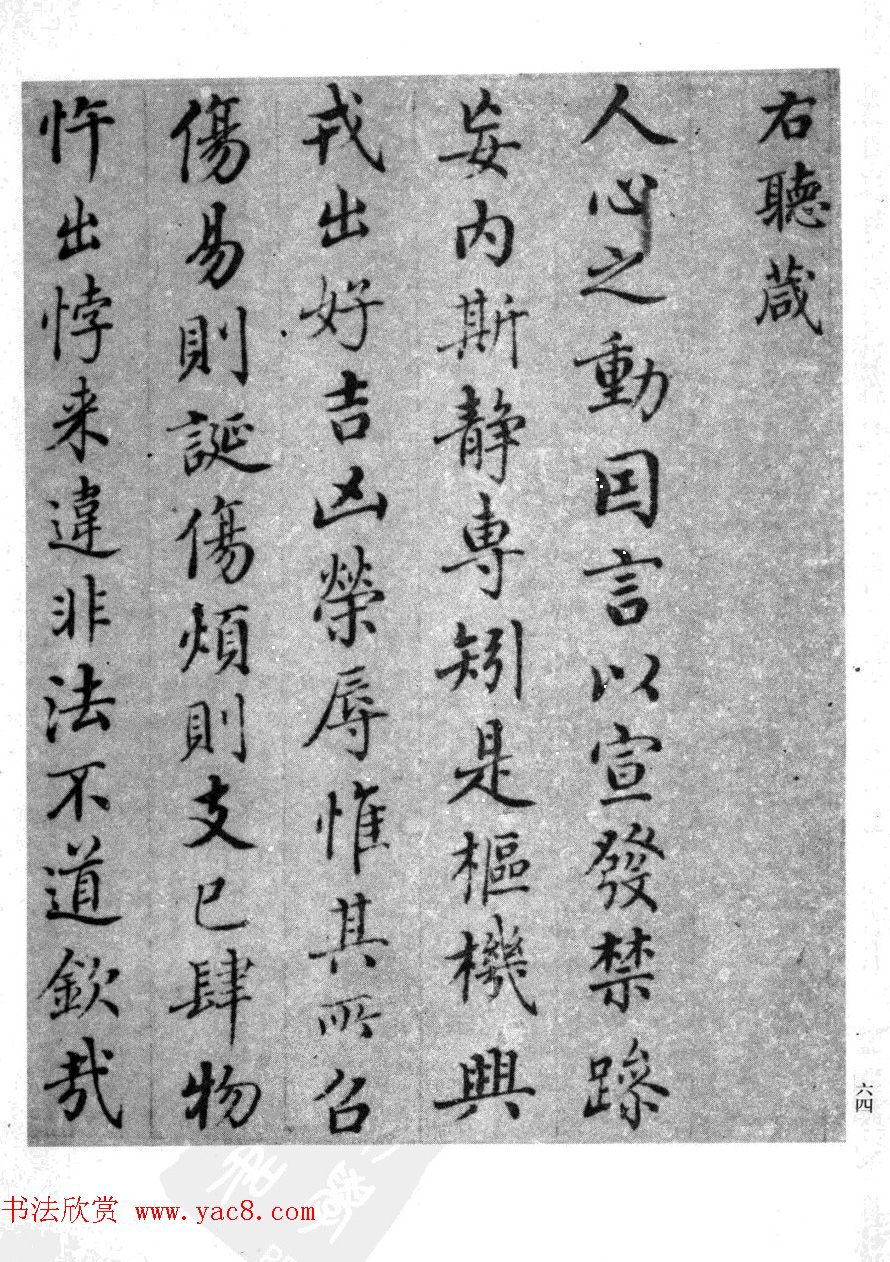 右聽葴
人心之動因言以宣發禁躁
妄内斯静専矧是樞機興
戎出好吉凶榮辱惟其所召
傷易則誕傷煩則支已肆物
忤出悖来違非法不道欽哉
六四
书法欣赏 www.yac8.com